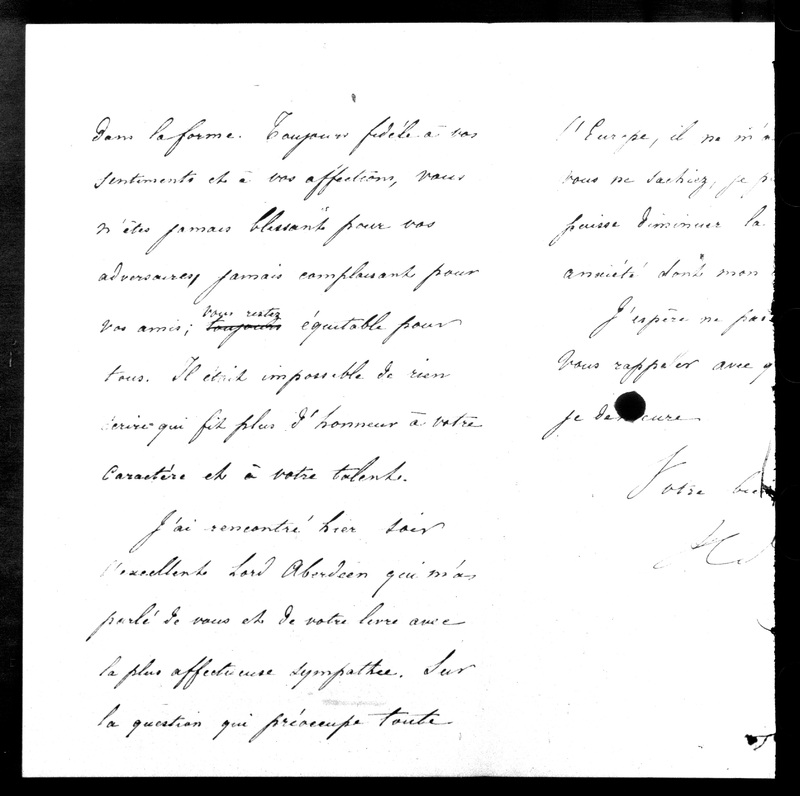 dans la forme. Toujours fidèle à vos
sentiments et à vos affections, vous
n'êtes jamais blessant pour vos
adversaires, jamais complaisant pour
vos amis; vous restez toujours équitable pour
tous. Il était impossible de rien
écrire qui fit plus d'honneur à votre
caractère et à votre talent.
J'ai rencontré hier soir
l'excellent Lord Aberdeen qui m'a
parlé de vous et de votre livre avec
la plus affectueuse sympathie. Sur
la question qui préoccupe toute
l'Europe, il ne m'a
vous ne sachiez, je p
puisse diminuer la
anxiété dont mon
J'espère ne pas
vous rappeler avec q
je demeure
Votre bien